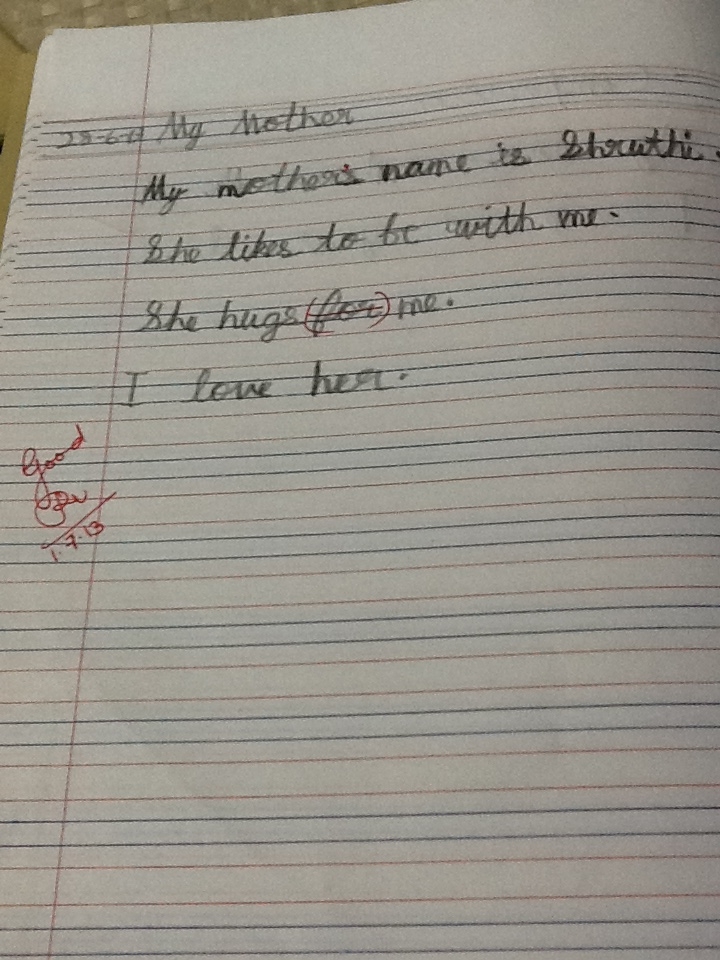 My Mother
My mother's name is Shruthi.
She likes to be with me.
She hugs (for) me.
I love her.
Good
1.7.13